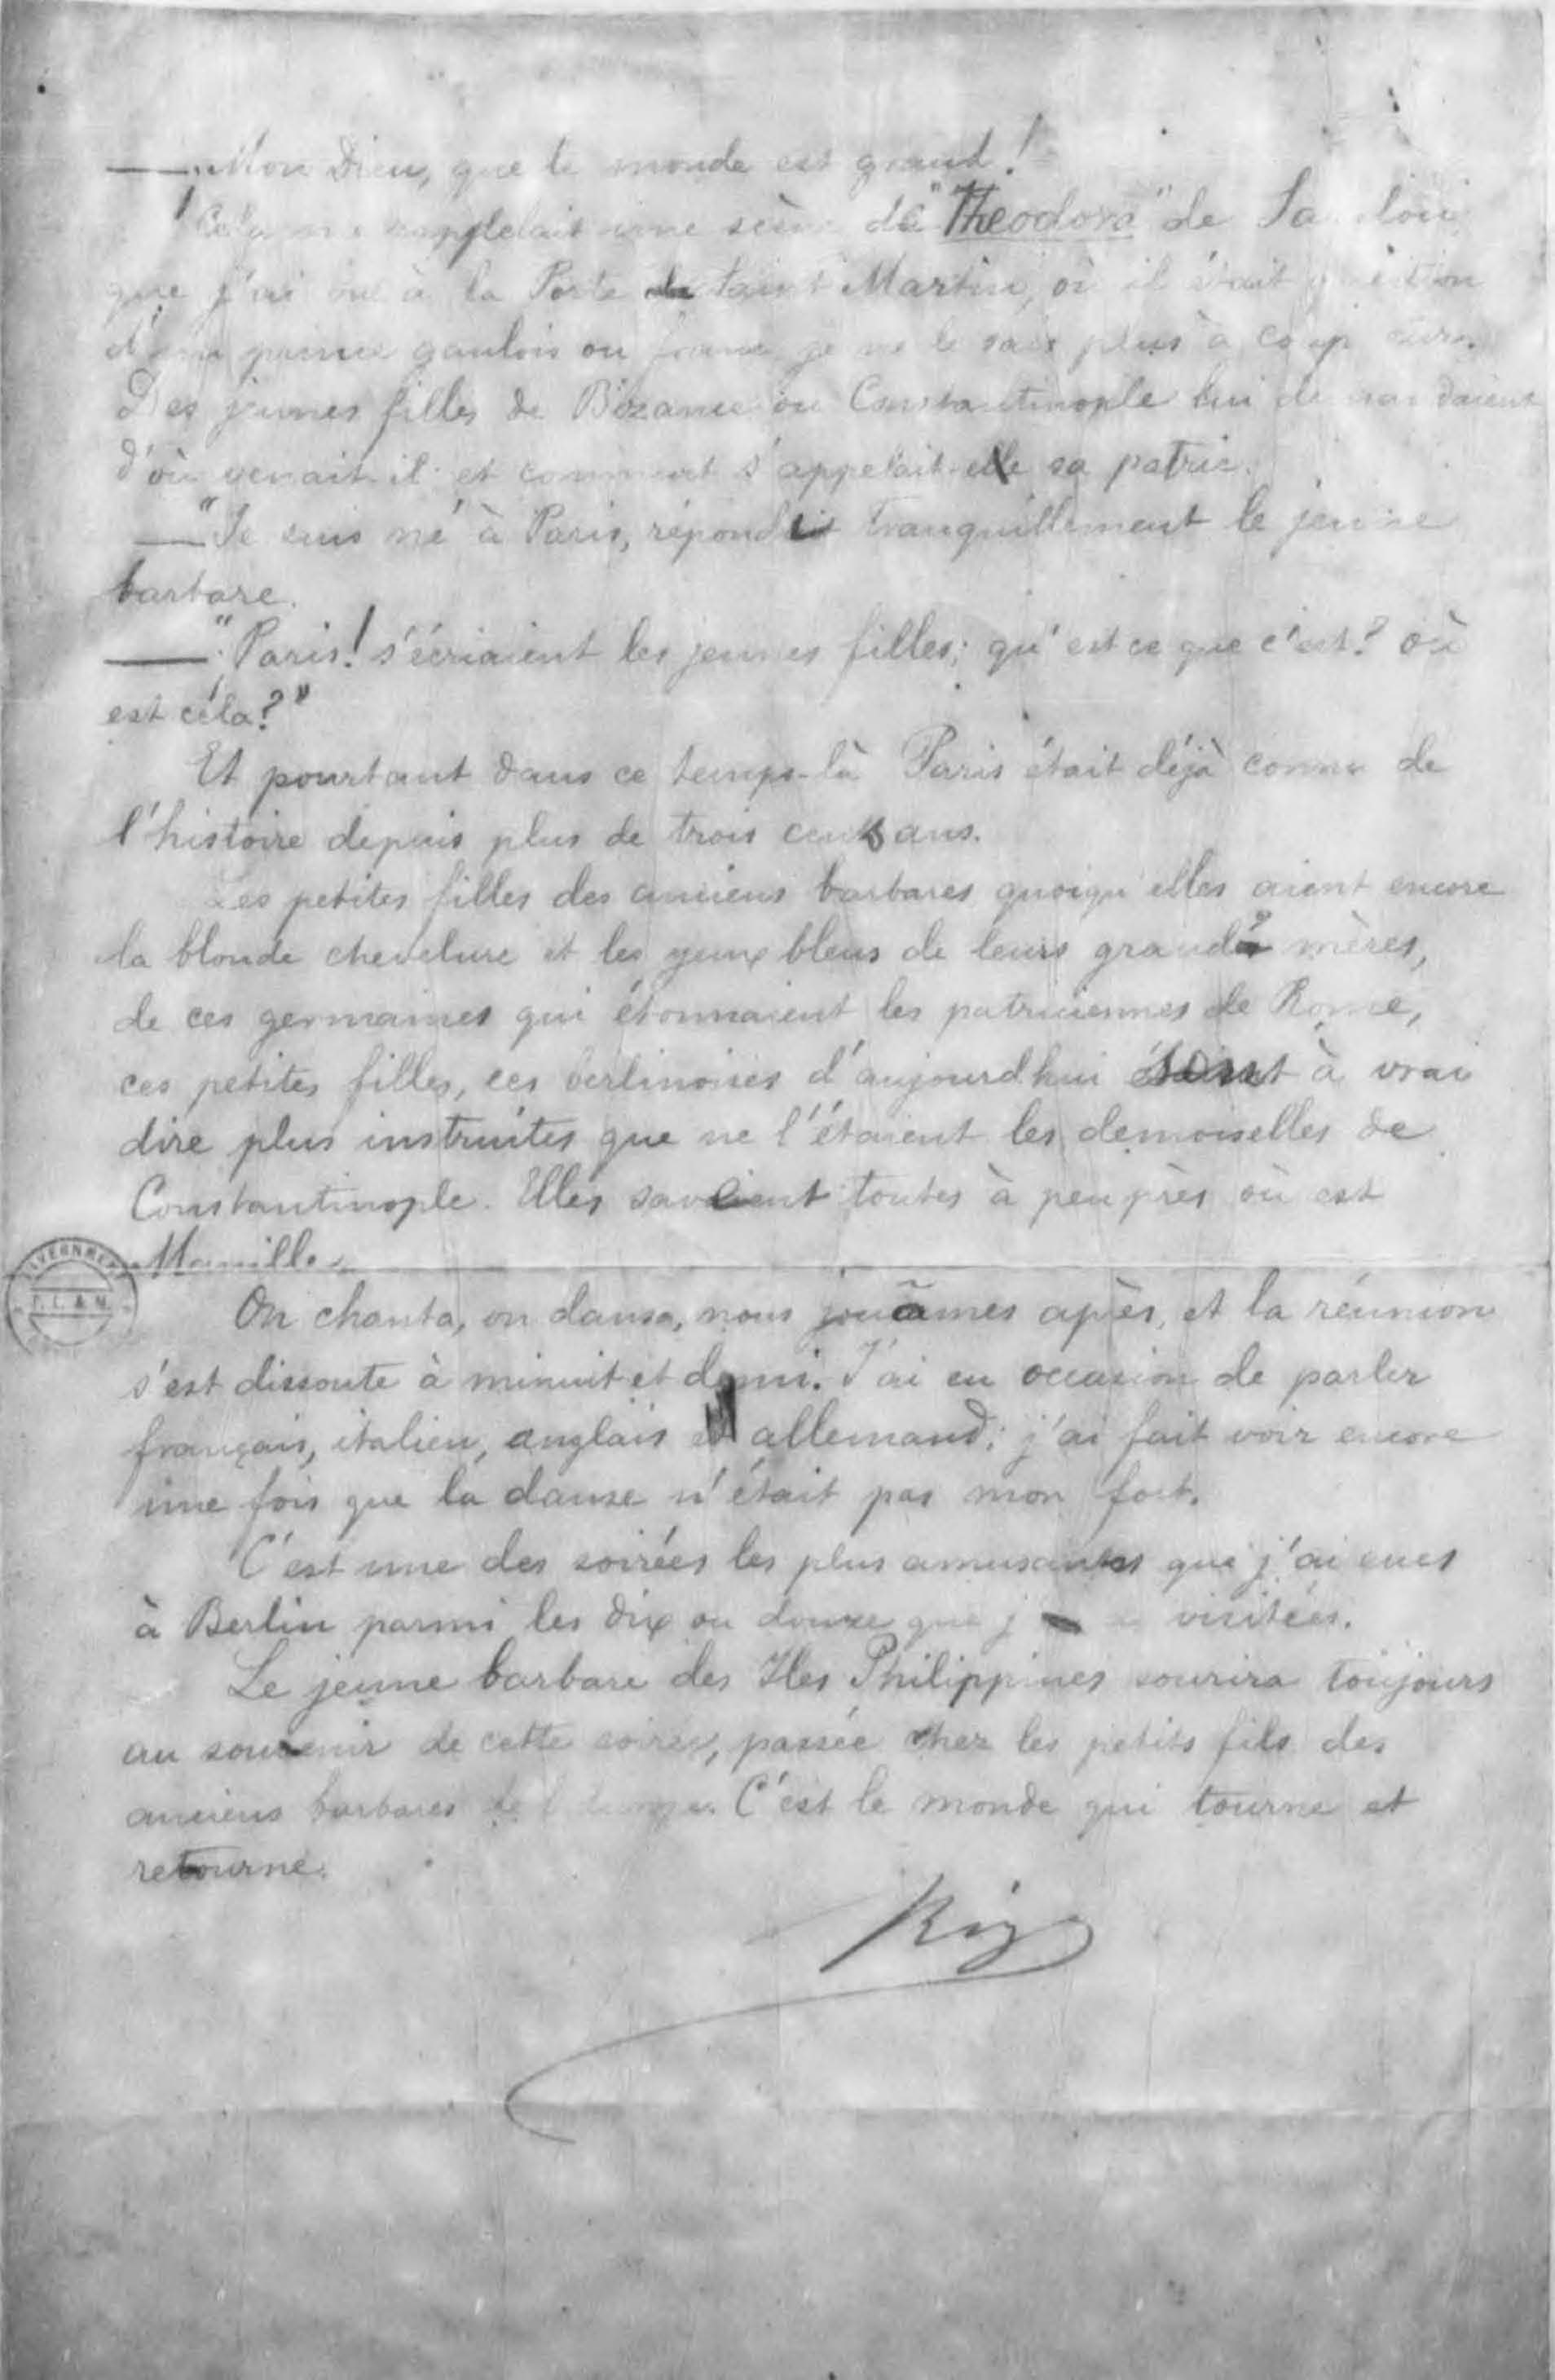 — "Mon Dieu, que le monde est grand!
Cela me rappelait une scène de "Theodora" de Sardou
que j'ai vue à la Porte Saint Martin, où il était question
d'un prince gaulois ou franc, je ne le sais plus à coup sûr.
Des jeunes filles de Bizance ou Constantinople lui demandaient
d'où venait-il et comment s'appelait-elle sa patrie.
— "Je suis né à Paris, répondit tranquillement le jeune
barbare.
— "Paris! s'écriaient les jeunes filles; qu'est ce que c'est? où
est céla?"
Et pourtant dans ce temps-là Paris était déjà connu de
l'histoire depuis plus de trois cents ans.
Les petites filles des anciens barbares quoiqu'elles aient encore
la blonde chevelure et les yeux bleus de leurs grands mères,
de ces germaines qui étonnaient les patriciennes de Rome,
ces petites filles, ces berlinoises d'aujourd'hui sont à vrai
dire plus instruites que ne l'étaient les demoiselles de
Constantinople. Elles savaient toutes à peu près où est
Manille.
On chanta, on dansa, nous jouâmes après, et la réunion
s'est dissoute à minuit et demi. J'ai eu occasion de parler
français, italien, anglais et allemand; j'ai fait voir encore
une fois que la danse n'était pas mon fort.
C'est une des soirées les plus amusantes que j'ai eues
à Berlin parmi les dix ou douze que j visitées.
Le jeune barbare des Iles Philippines sourira toujours
au souvenir de cette soirée, passée chez les petits fils des
anciens barbares C'est le monde qui tourne et
retourne.